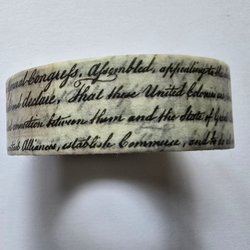 Congress, Assembled, appealing to the
and declare, That these United Colonies are
connection between them and the State of Great
Alliances, establish Commerce, and to